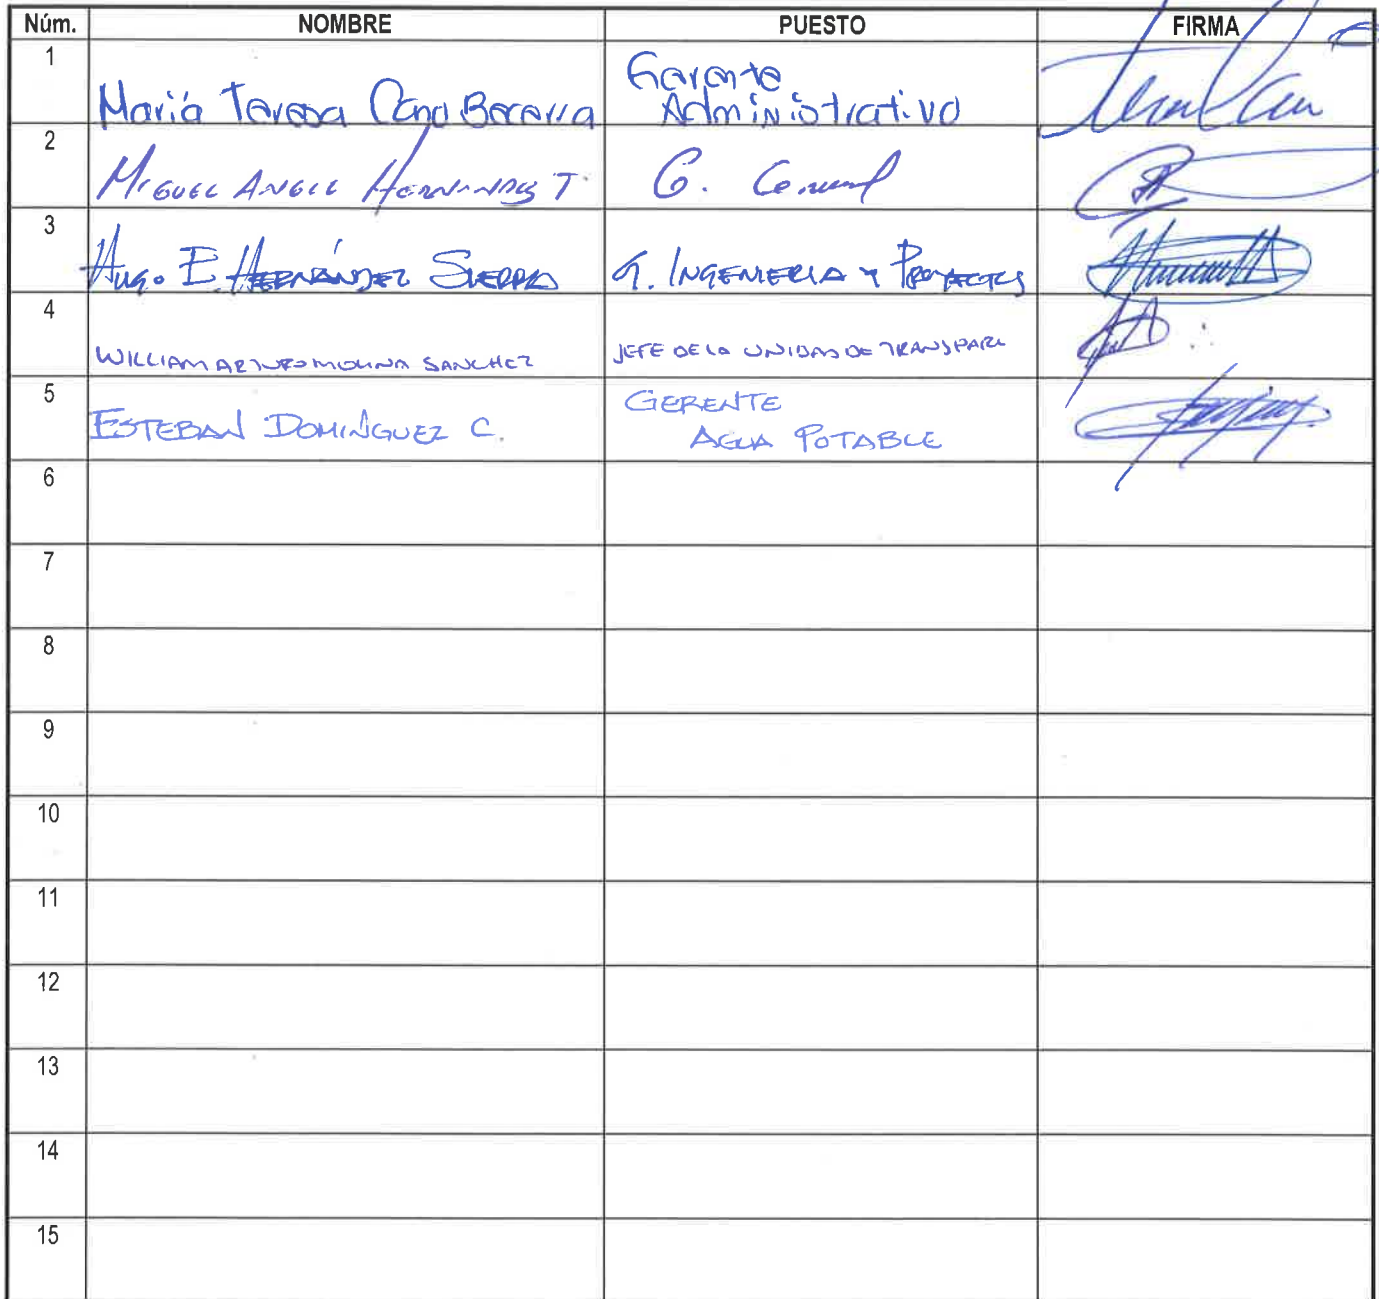 Núm. NOMBRE PUESTO FIRMA
1 María Teresa Cano Becerra Gerente
Administrativo
2 MIGUEL ANGEL HERNANDEZ T G.
3 Hugo E. HERNÁNDEZ SIERRA G. INGENIERIA Y PROYECTOS
4 WILLIAM ARTURO MOLINA SANCHEZ JEFE DE LA UNIDAD DE TRANSPARE
5 ESTEBAN DOMÍNGUEZ C. GERENTE
AGUA POTABLE
6
7
8
9
10
11
12
13
14
15